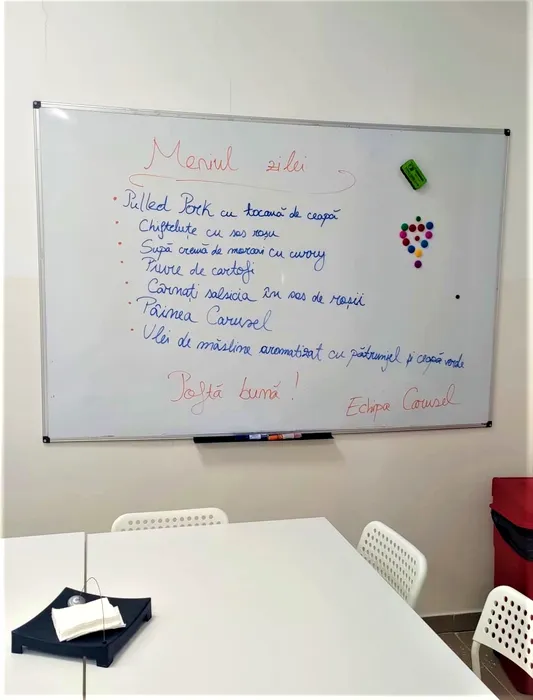 Meniul zilei
• Pulled Pork cu tocană de ceapă
• Chiftelute cu sos roșu
• Supă cremă de morcovi cu curry
• Piure de cartofi
• Cârnați salsicia în sos de roșii
• Pâinea Carusel
• Ulei de măsline aromatizat cu pătrunjel și ceapă verde
Poftă bună!
Echipa Carusel